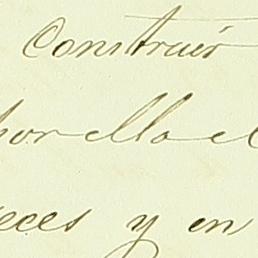 Construir
por ella el
veces y en